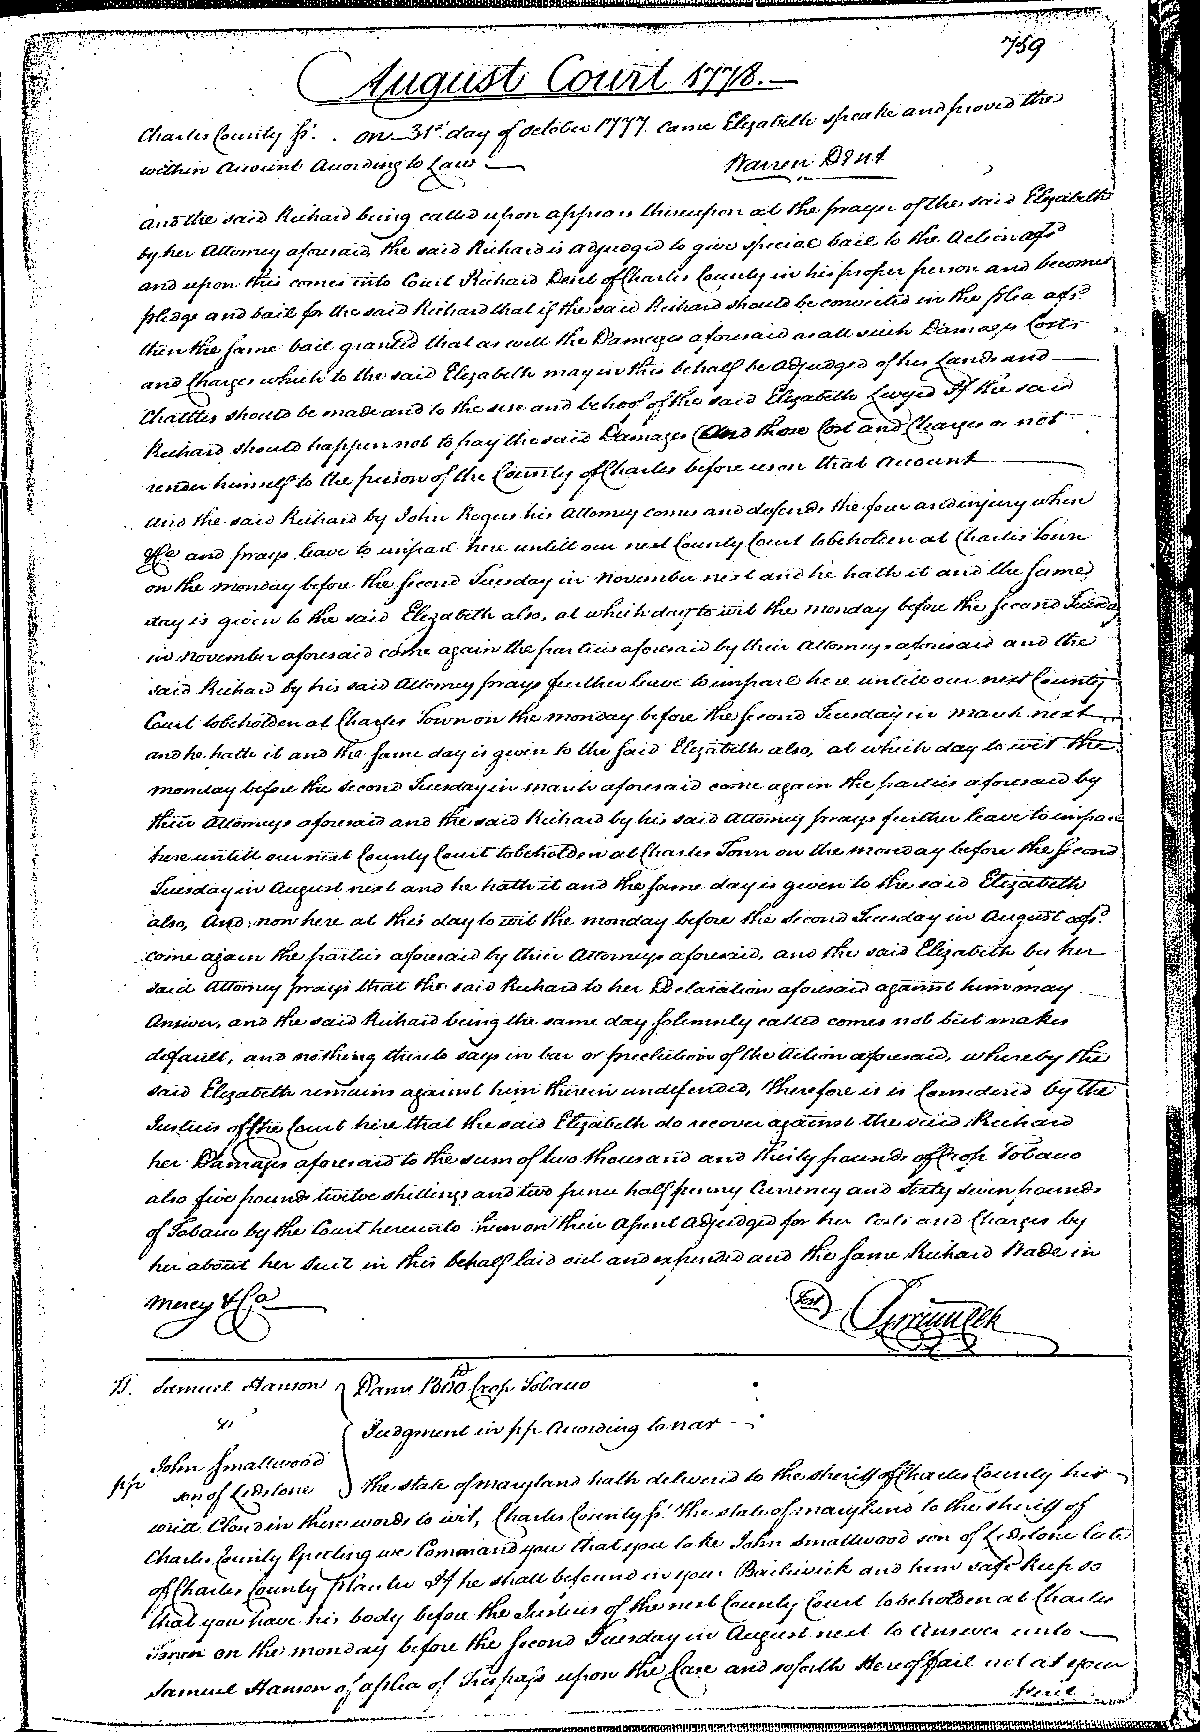 759
August Court 1778.
Charles County Ss. on 31st day of October 1777 came Elizabeth Speake and proved the
within Account According to Law
Warren Dent
And the said Richard being called upon appears thereupon at the prayer of the said Elizabeth
by her Attorney aforesaid, the said Richard is adjudged to give special bail to the Action afsd
and upon this comes into Court Richard Dent of Charles County in his proper person and becomes
pledge and bail for the said Richard that if the said Richard should be convicted in the plea afsd
then the same bail granted that as well the Damages aforesaid as all such Damages Costs
and Charges which to the said Elizabeth may in this behalf be adjudged of his Lands and
Chattles should be made and to the use and behoof of the said Elizabeth Levyed If the said
Richard should happen not to pay the said Damages And those Cost and Charges or not
render himself to the prison of the County of Charles before upon that Account
And the said Richard by John Rogers his Attorney comes and defends the force and injury when
&Ca and prays leave to imparl here untill our next County Court tobeholden at Charles Town
on the monday before the second Tuesday in November next and he hath it and the same
day is given to the said Elizabeth also, at which day to wit the monday before the second Tuesday
in November aforesaid come again the parties aforesaid by their Attorneys aforesaid and the
said Richard by his said Attorney prays further leave to imparl here untill our next County
Court tobeholden at Charles Town on the monday before the second Tuesday in march next
and he hath it and the same day is given to the said Elizabeth also, at which day to wit the
monday before the second Tuesday in march aforesaid come again the parties aforesaid by
their Attorneys aforesaid and the said Richard by his said Attorney prays further leave to imparl
here untill our next County Court tobeholden at Charles Town on the monday before the second
Tuesday in August next and he hath it and the same day is given to the said Elizabeth
also, And now here at this day to wit the monday before the second Tuesday in August afsd
come again the parties aforesaid by their Attorneys aforesaid, and the said Elizabeth by her
said Attorney prays that the said Richard to her Declaration aforesaid against him may
Answer, and the said Richard being the same day solemnly called comes not but makes
default, and nothing thereto says in bar or preclusion of the Action aforesaid, whereby the
said Elizabeth remains against him therein undefended, Therefore it is Considered by the
Justices of the Court here that the said Elizabeth do recover against the said Richard
her Damages aforesaid to the sum of two thousand and thirty pounds of Crop Tobacco
also five pounds twelve shillings and two pence half penny Currency and sixty seven pounds
of Tobacco by the Court hereunto her on their Assent Adjudged for her Costs and Charges by
her about her suit in this behalf laid out and expended and the same Richard Wade in
mercy &Ca
Test
Samuel Hanson Dams 1300 lb Crop Tobacco
vs
Judgment in pp According to nar
John Smallwood
pp son of Ledstone The state of maryland hath delivered to the sheriff of Charles County her
writ Closd in these words to wit, Charles County Ss. The state of maryland to the sheriff of
Charles County Greeting we Command you that you take John Smallwood son of Ledstone late
of Charles County planter If he shall be found in your Bailiwick and him safe keep so
that you have his body before the Justices of the next County Court tobeholden at Charles
Town on the monday before the second Tuesday in August next to Answer unto
Samuel Hanson of a plea of Trespass upon the Case and soforth Hereof fail not at your